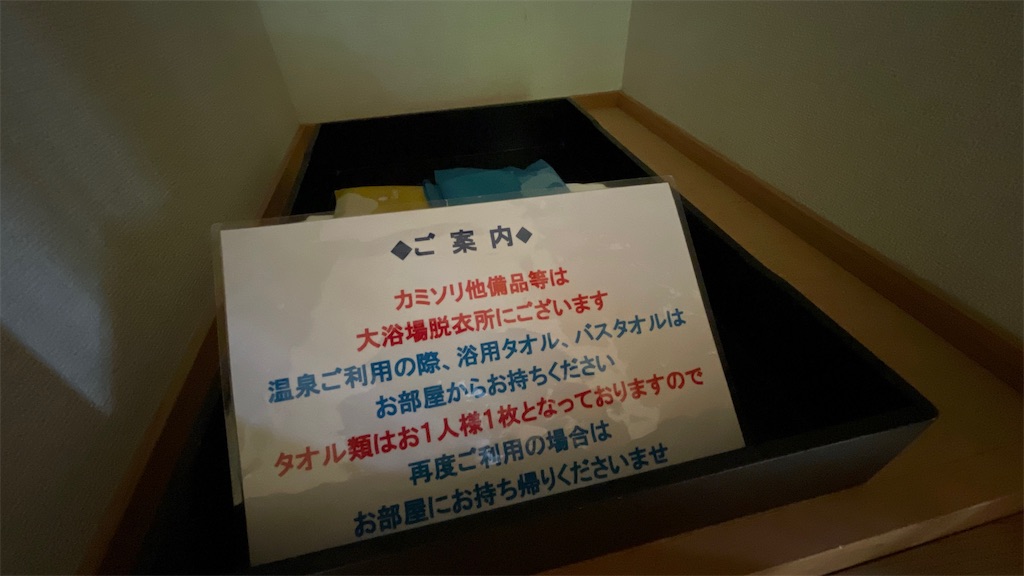 ◆ご案内◆
カミソリ他備品等は
大浴場脱衣所にございます
温泉ご利用の際、浴用タオル、バスタオルは
お部屋からお持ちください
タオル類はお1人様1枚となっておりますので
再度ご利用の場合は
お部屋にお持ち帰りくださいませ